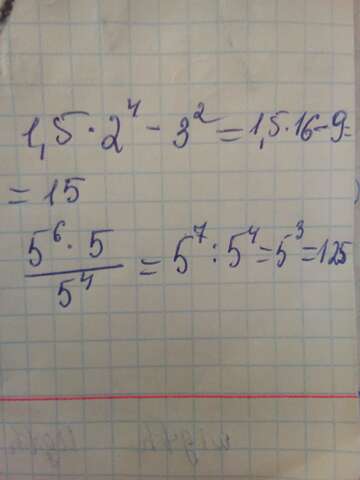 1,5 · 2⁴ - 3² = 1,5 · 16 - 9 =
= 15
5⁶ · 5 / 5⁴ = 5⁷ : 5⁴ = 5³ = 125